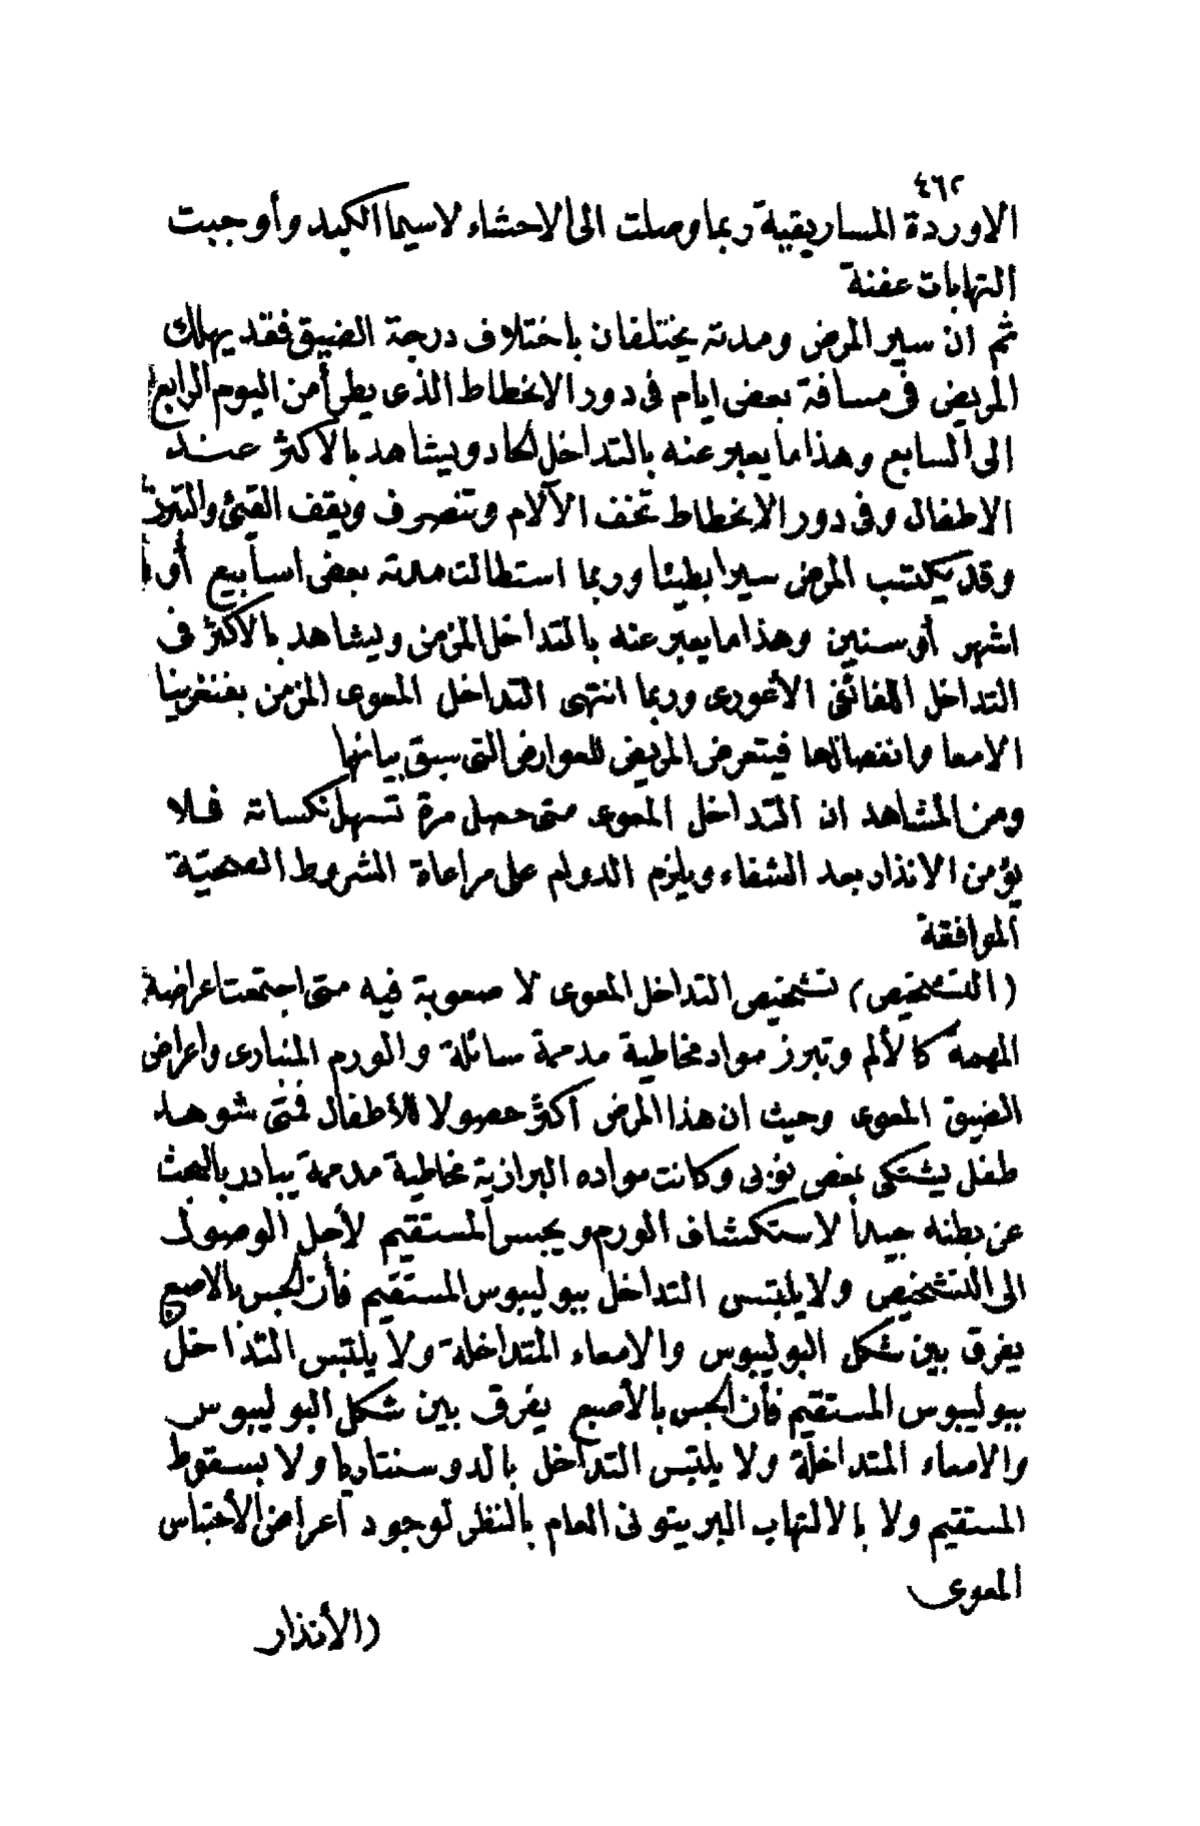 ٤٦٢
الاوردة المساريقية ربما وصلت الى الاحشاء لاسيما الكبد وأوجبت
التهابات عفنة
ثم ان سير المرض ومدته يختلفان باختلاف درجة الضيق فقد يهلك
المريض فى مسافة بعض ايام فى دور الانحطاط الذى يطرأ من اليوم الرابع
الى السابع وهذا ما يعبر عنه بالتداخل الحاد ويشاهد بالاكثر عند
الاطفال وفى دور الانحطاط تخف الآلام وتنصرف ويقف القيئ والتبرز
وقد يكتسب المرض سيرا بطيئا وربما استطالت مدته بعض اسابيع أو
اشهر أو سنين وهذا ما يعبر عنه بالتداخل المزمن ويشاهد بالاكثر فى
التداخل اللفائفى الأعورى وربما انتهى التداخل المعوى المزمن بغنغرينا
الامعا وانفصالها فيتعرض المريض للعوارض التى سبق بيانها
ومن المشاهد ان التداخل المعوى متى حصل مرة تسهل نكساته فلا
يؤمن الانذار بعد الشفاء ويلزم الدوام على مراعاة الشروط الصحيّة
الموافقة
(التشخيص) تشخيص التداخل المعوى لا صعوبة فيه متى اجتمعت اعراضه
المهمة كالألم وتبرز مواد مخاطية مدممة سائلة والورم المنبارى واعراض
الضيق المعوى وحيث ان هذا المرض أكثر حصولا للأطفال فمتى شوهد
طفل يشتكى بمغص نوبى وكانت مواده البرازية مخاطية مدممة يبادر بالبحث
عن بطنه جيداً لاستكشاف الورم ويجس المستقيم لأجل الوصول
الى التشخيص ولا يلتبس التداخل ببوليبوس المستقيم فأن الجس بالاصبع
يفرق بين شكل البوليبوس والامعاء المتداخلة ولا يلتبس التداخل
ببوليبوس المستقيم فأن الجس بالأصبع يفرق بين شكل البوليبوس
والامعاء المتداخلة ولا يلتبس التداخل بالدوسنتاريا ولا بسقوط
المستقيم ولا بالالتهاب البريتونى العام بالنظر لوجود اعراض الأحتباس
المعوى
(الأنذار